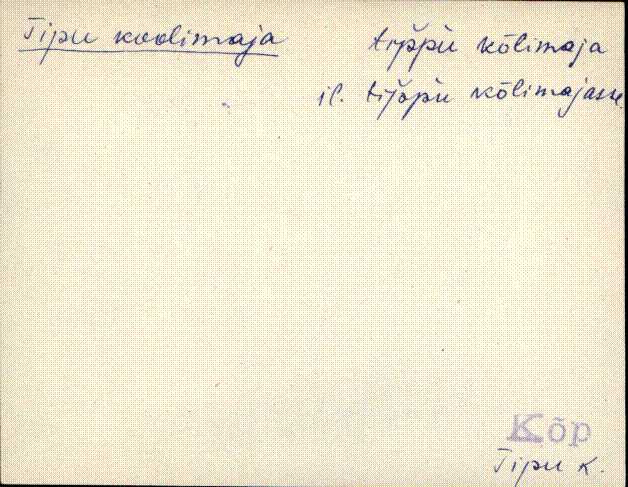 Tipu koolimaja tip̆pu kõlimaja
il. tip̆pu kõlimajasse
Kõp
Tipu k.